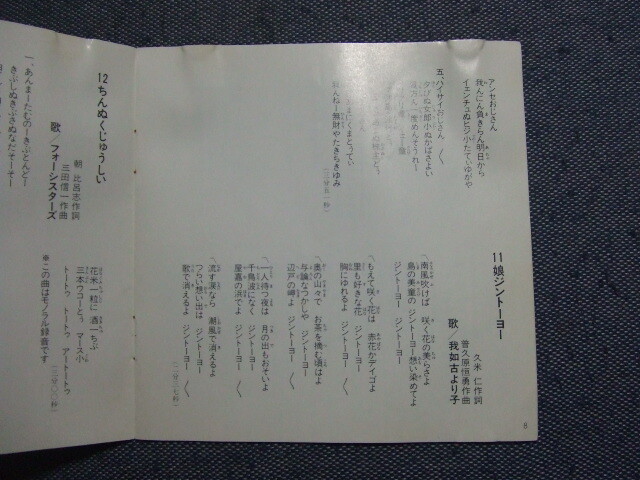 アンセおじさん
我んにん負きらん明日から
イェンチュぬヒジ小たてぃゆがや
五、ハイサイおじさん
夕びぬ女郎小ぬかばさよい
まにくまとってぃ
無財やたきちきゆみ
11 娘ジントーヨー
久米 仁作詞
普久原恒勇作曲
歌／我如古より子
一、南風吹けば 咲く花の美らさよ
ジントーヨー
島の美童の ジントーヨー想い染めてよ
ジントーヨー
一、もえて咲く花は 赤花かデイゴよ
里も好きな花 ジントーヨー
胸にゆれるよ ジントーヨー
一、奥の山々で お茶を摘む頃はよ
与論なつかしや ジントーヨー
辺戸の岬よ ジントーヨー
一、一人待つ夜は 月の出もおそいよ
千鳥波になく ジントーヨー
屋嘉の浜でよ ジントーヨー
一、流す涙なら 潮風で消えるよ
つらい想い出は ジントーヨー
歌で消えるよ ジントーヨー
8
12 ちんぬくじゅうしい
朝 比呂志作詞
三田信一作曲
歌／フォーシスターズ
一、あんまーたむのーきぶとんどー
きぶしぬきぶさぬなだそーそー
花米一粒に 酒一ちぶ
三本ウコーとぅ マース小
トートゥ トートゥ アートートゥ
※この曲はモノラル録音です